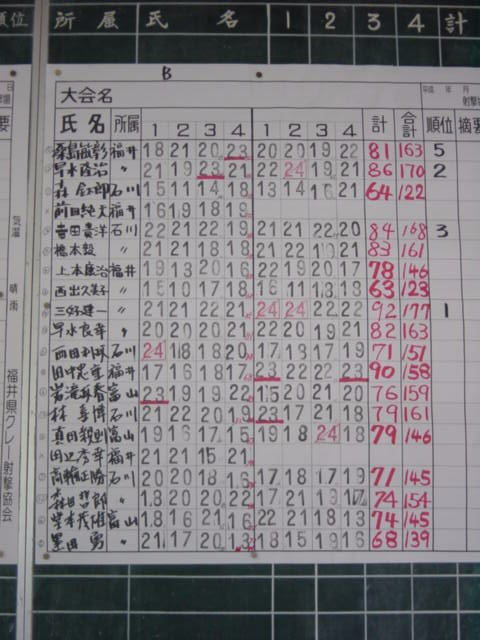 順位 所属 氏名 1 2 3 4 計
B
大会名 平成 年 月
氏名 所属 1 2 3 4 1 2 3 4 計 合計 順位 摘要
福井 18 21 20 23 20 20 19 22 81 163 5
早水隆治 〃 21 19 23 21 22 24 19 21 86 170 2
石川 15 11 14 18 13 14 16 21 64 122
前田純文 福井 16 19 18 19
寺田貴洋 石川 22 21 21 20 21 21 22 20 84 168 3
橋本毅 〃 21 21 18 18 83 161
上本康治 福井 19 13 20 16 22 19 20 17 78 146
西出久美子 〃 15 10 17 18 63 123
三好建一 〃 21 21 22 21 24 24 22 22 92 177 1
早水良幸 〃 20 20 20 21 22 20 19 21 82 163
石川 24 18 18 20 17 18 17 19 71 151
福井 17 16 18 17 23 22 22 23 90 158
富山 23 19 19 22 15 20 21 20 76 159
林喜博 石川 21 22 20 19 23 17 21 18 79 161
富山 19 16 17 15 19 18 24 18 79 146
田辺秀幸 福井 21 21 15 21
高輪正勝 石川 20 20 18 16 17 18 17 19 71 145
森田哲郎 〃 18 20 20 22 17 21 19 17 74 154
富山 18 16 21 16 22 21 18 13 74 145
黒田勇 〃 21 17 20 13 18 15 19 16 68 139
気温
晴雨
福井県クレー射撃協会